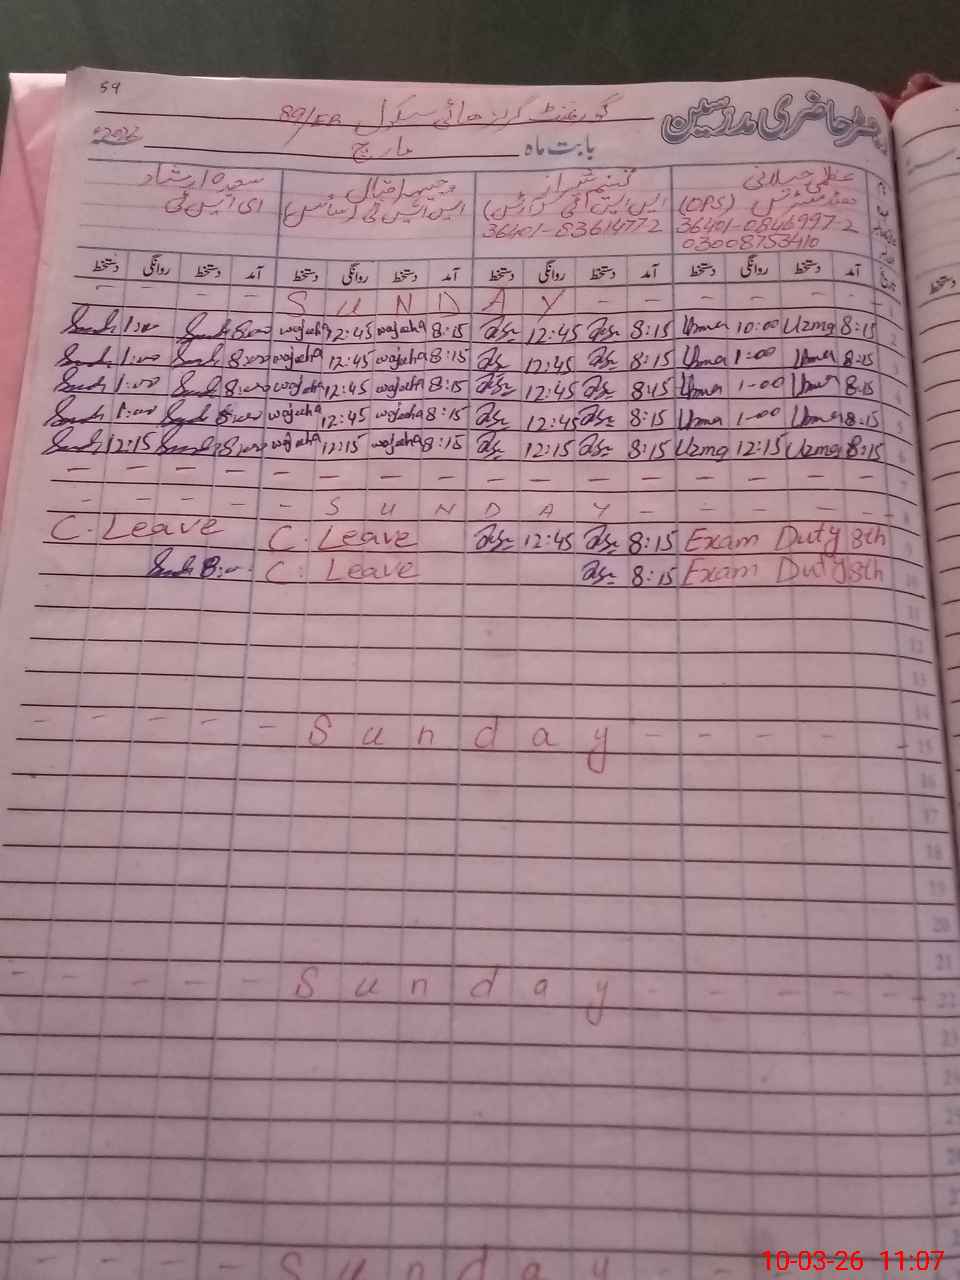 59
رجسٹر حاضری مدرسین
گورنمنٹ گرلز ہائی سکول 89/EB
بابت ماہ مارچ 2026ء
عظمیٰ جیلانی شبنم شہزاد وجیہہ اقبال سعدہ ارشاد
ہیڈ مسٹریس (OPS) ایس ایس ٹی (آرٹس) ایس ایس ٹی (سائنس) ای ایس ٹی
36401-0846997-2 36401-8361477-2
03008753410
تاریخ آمد دستخط روانگی دستخط آمد دستخط روانگی دستخط آمد دستخط روانگی دستخط آمد دستخط روانگی دستخط
- - - - S U N D A Y - - - - - 1
1:00 8:00 wajeeha 12:45 wajeeha 8:15 12:45 8:15 Uzma 10:00 Uzma 8:15 2
1:00 8:00 wajeeha 12:45 wajeeha 8:15 12:45 8:15 Uzma 1:00 Uzma 8:15 3
1:00 8:00 wajeeha 12:45 wajeeha 8:15 12:45 8:15 Uzma 1-00 Uzma 8:15 4
1:00 8:00 wajeeha 12:45 wajeeha 8:15 12:45 8:15 Uzma 1-00 Uzma 8:15 5
12:15 8:00 wajeeha 12:15 wajeeha 8:15 12:15 8:15 Uzma 12:15 Uzma 8:15 6
- - - - - - - - - - - - - - - 7
- - - - S U N D A Y - - - - - 8
C. Leave C. Leave 12:45 8:15 Exam Duty 8th 9
8:00 C. Leave 8:15 Exam Duty 8th 10
11
12
13
14
- - - - - S u n d a y - - - - - 15
16
17
18
19
20
21
- - - - - S u n d a y - - - - - - 22
23
24
25
- - - - - S u n d a y
10-03-26 11:07